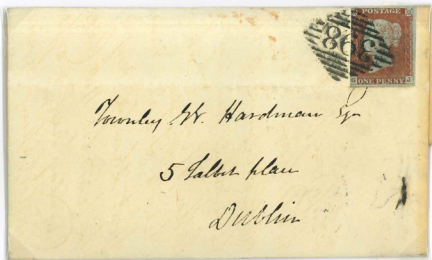 POSTAGE
98
ONE PENNY
Townley W. Hardman Esq
5 Talbot place
Dublin